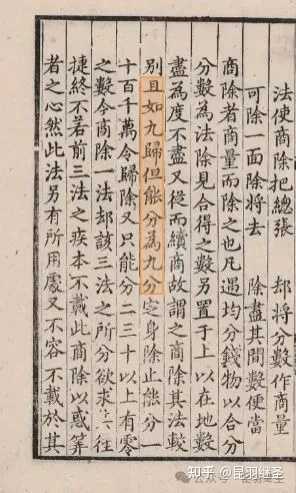 法使商除把總張　却將分數作商量
可除一面除將去　除盡其間數便當
商除者商量而除之也凡遇均分錢物以合分
分數為法除見合得之數另置于上以在地數
盡為度不盡又從而續商故謂之商除其法較
別且如九歸但能分為九分定身除止能分一
十百千萬令歸除又只能分二三十以上有零
之數今商除一法却該三法之所分欲求六往
捷終不若前三法之疾本不載此商除以惑筭
者之心然此法另有所用處又不容不載於其
知乎 @昆羽继圣
公众号 昆羽继圣